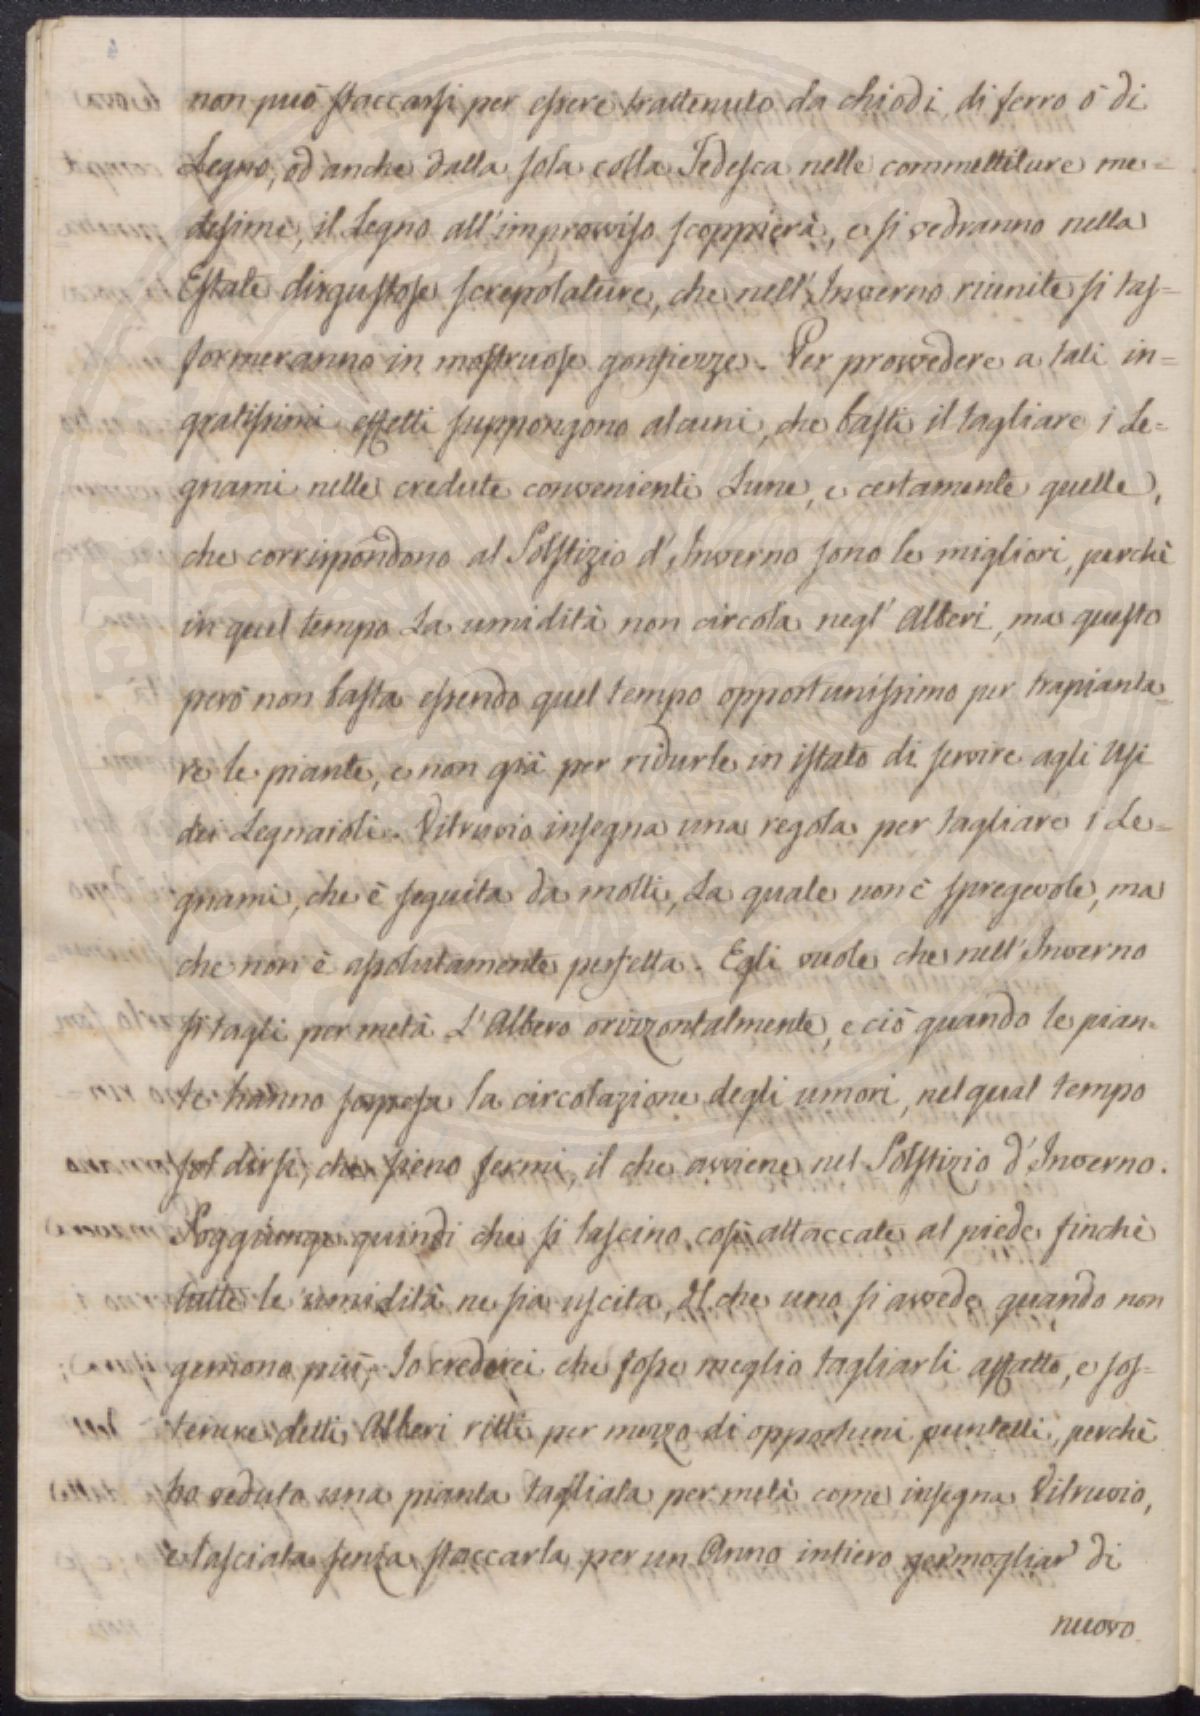 non può staccarsi per essere trattenuto da chiodi di ferro ò di
Legno, od anche dalla sola colla Tedesca nelle commettiture me=
desime, il Legno all'improvviso scoppierà, e si vedranno nella
Estate disgustose screpolature, che nell'Inverno riunite si tas=
formeranno in mostruose gonfiezze. Per provvedere a tali in=
gratissimi effetti suppongono alcuni, che basti il tagliare i Le=
gnami nelle credute convenienti Lune, e certamente quelle,
che corrispondono al Solstizio d'Inverno sono le migliori, perchè
in quel tempo La umidità non circola negl'Alberi, ma questo
però non basta essendo quel tempo opportunissimo per trapianta=
re le piante, e non già per ridurle in istato di servire agli Usi
dei Legnaioli. Vitruvio insegna una regola per tagliare i Le=
gnami, che è seguita da molti, La quale non è spregevole, ma
che non è assolutamente perfetta. Egli vuole che nell'Inverno
si tagli per metà L'Albero orizzontalmente, e ciò quando le pian=
te hanno sospesa la circolazione degli umori, nel qual tempo
sol dirsi, che sieno fermi, il che avviene nel Solstizio d'Inverno.
Soggiunge quindi che si lascino così attaccate al piede finchè
tutte le umidità ne sia uscita, Il che uno si avvede quando non
gemono più; Io crederei che fosse meglio tagliarli affatto, e sos=
tenere detti Alberi ritti per mezzo di opportuni puntelli, perchè
ho veduto una pianta tagliata per metà come insegna Vitruvio,
e lasciata senza staccarla per un Anno intiero germogliar di
nuovo